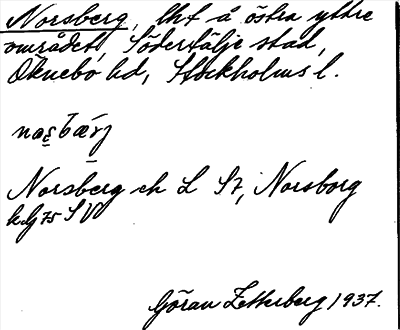 Norsberg, lht å östra yttre
området, Södertälje stad,
Öknebo hd, Stockholms l.
Norsberg ek L St, Norsborg
k Gj 75 SV
Göran Zetterberg 1937.